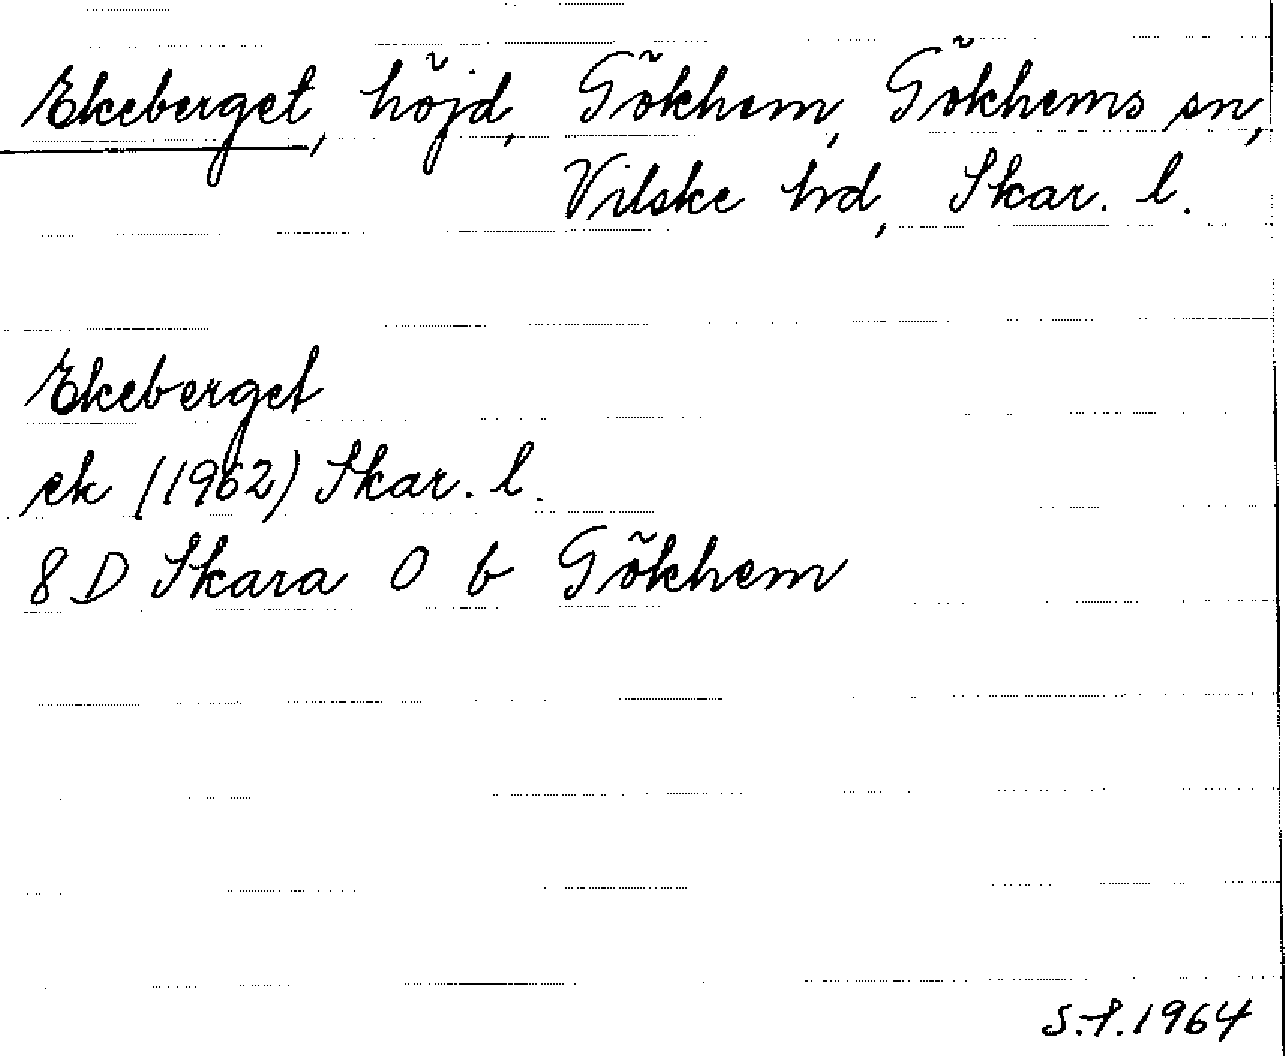 Ekeberget, höjd, Gökhem, Gökhems sn,
Vilske hd, Skar. l.
Ekeberget
ek (1962) Skar. l.
8 D Skara 0 b Gökhem
S.-f. 1964